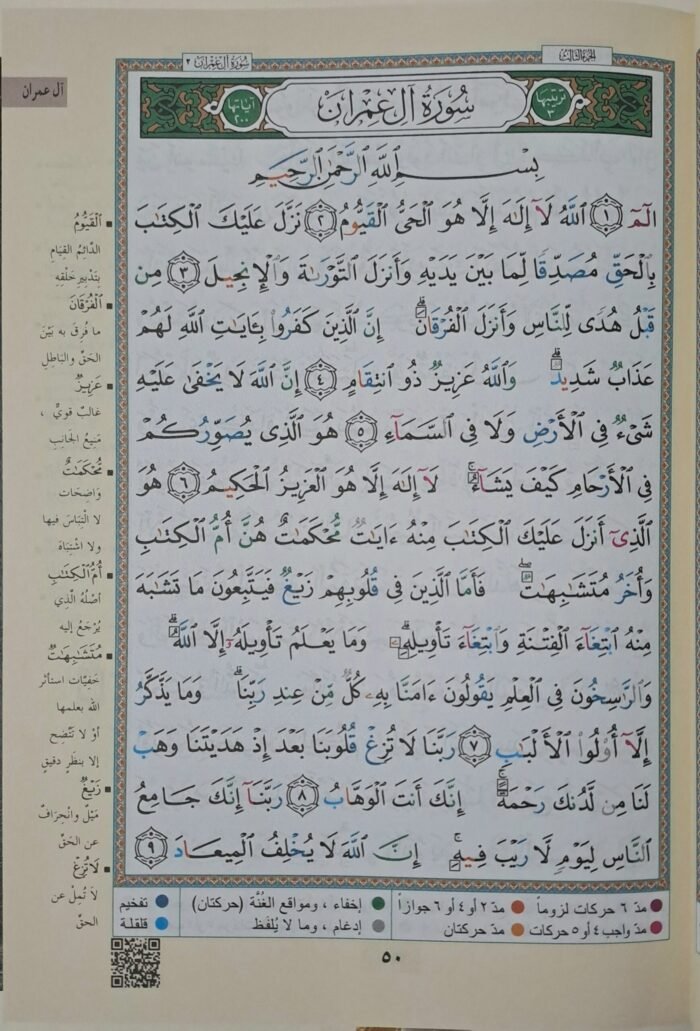 الجزء الثالث
سُورَةُ آلِ عِمْرَانَ ٣
آل عمران
ترتيبها ٣
سُورَةُ آلِ عِمْرَانَ
آياتها ٢٠٠
بِسْمِ اللَّهِ الرَّحْمَٰنِ الرَّحِيمِ
الٓمٓ ١ ٱللَّهُ لَآ إِلَٰهَ إِلَّا هُوَ ٱلْحَىُّ ٱلْقَيُّومُ ٢ نَزَّلَ عَلَيْكَ ٱلْكِتَٰبَ
بِٱلْحَقِّ مُصَدِّقًا لِّمَا بَيْنَ يَدَيْهِ وَأَنزَلَ ٱلتَّوْرَىٰةَ وَٱلْإِنجِيلَ ٣ مِن
قَبْلُ هُدًى لِّلنَّاسِ وَأَنزَلَ ٱلْفُرْقَانَ ۗ إِنَّ ٱلَّذِينَ كَفَرُوا۟ بِـَٔايَٰتِ ٱللَّهِ لَهُمْ
عَذَابٌ شَدِيدٌ ۗ وَٱللَّهُ عَزِيزٌ ذُو ٱنتِقَامٍ ٤ إِنَّ ٱللَّهَ لَا يَخْفَىٰ عَلَيْهِ
شَىْءٌ فِى ٱلْأَرْضِ وَلَا فِى ٱلسَّمَآءِ ٥ هُوَ ٱلَّذِى يُصَوِّرُكُمْ
فِى ٱلْأَرْحَامِ كَيْفَ يَشَآءُ ۚ لَآ إِلَٰهَ إِلَّا هُوَ ٱلْعَزِيزُ ٱلْحَكِيمُ ٦ هُوَ
ٱلَّذِىٓ أَنزَلَ عَلَيْكَ ٱلْكِتَٰبَ مِنْهُ ءَايَٰتٌ مُّحْكَمَٰتٌ هُنَّ أُمُّ ٱلْكِتَٰبِ
وَأُخَرُ مُتَشَٰبِهَٰتٌ ۖ فَأَمَّا ٱلَّذِينَ فِى قُلُوبِهِمْ زَيْغٌ فَيَتَّبِعُونَ مَا تَشَٰبَهَ
مِنْهُ ٱبْتِغَآءَ ٱلْفِتْنَةِ وَٱبْتِغَآءَ تَأْوِيلِهِۦ ۗ وَمَا يَعْلَمُ تَأْوِيلَهُۥٓ إِلَّا ٱللَّهُ ۗ
وَٱلرَّٰسِخُونَ فِى ٱلْعِلْمِ يَقُولُونَ ءَامَنَّا بِهِۦ كُلٌّ مِّنْ عِندِ رَبِّنَا ۗ وَمَا يَذَّكَّرُ
إِلَّآ أُو۟لُوا۟ ٱلْأَلْبَٰبِ ٧ رَبَّنَا لَا تُزِغْ قُلُوبَنَا بَعْدَ إِذْ هَدَيْتَنَا وَهَبْ
لَنَا مِن لَّدُنكَ رَحْمَةً ۚ إِنَّكَ أَنتَ ٱلْوَهَّابُ ٨ رَبَّنَآ إِنَّكَ جَامِعُ
ٱلنَّاسِ لِيَوْمٍ لَّا رَيْبَ فِيهِ ۚ إِنَّ ٱللَّهَ لَا يُخْلِفُ ٱلْمِيعَادَ ٩
ٱلْقَيُّومُ
الدّائمُ القيَامِ
بتَدْبيرِ خَلْقِهِ
ٱلْفُرْقَانَ
ما فُرِقَ به بَيْنَ
الحَقِّ والبَاطِلِ
عَزِيزٌ
غالبٌ قَويٌّ ،
مَنِيعُ الجانِبِ
مُّحْكَمَٰتٌ
وَاضِحَات
لا الْتِبَاسَ فيها
ولا اشْتِبَاهَ
أُمُّ ٱلْكِتَٰبِ
أَصْلُهُ الَّذِي
يُرْجَعُ إليه
مُتَشَٰبِهَٰتٌ
خَفِيَّات استأثر
الله بعلمها
أوْ لا تَتَّضِح
إلا بنظرٍ دقيقٍ
زَيْغٌ
مَيْلٌ وانْحِرَافٌ
عن الحَقِّ
لَا تُزِغْ
لا تُمِلْ عن
الحقِّ
مدّ ٦ حركات لزوماً مدّ ٢ أو ٤ أو ٦ جوازاً إخفاء ، ومواقع الغُنَّة (حركتان) تفخيم
مدّ واجب ٤ أو ٥ حركات مدّ حركتان إدغام ، وما لا يُلفَظ قلقلة
٥٠